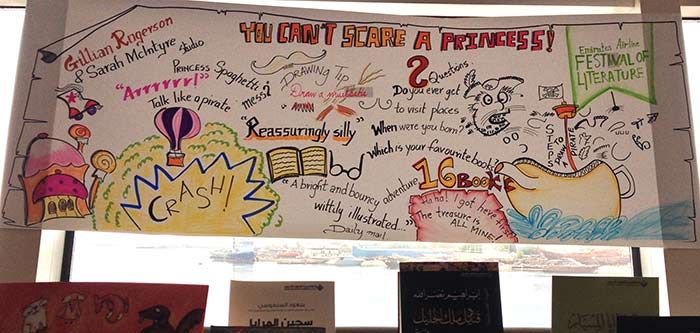 Gillian Rogerson
& Sarah McIntyre
Studio
YOU CAN'T SCARE A PRINCESS!
Emirates Airline
FESTIVAL OF
LITERATURE
PRINCESS
Spaghetti
mess?
"Arrrrr!"
Talk like a pirate
DRAWING TIP
Draw a mustache
"Reassuringly silly"
? Questions
Do you ever get
to visit places
When were you born?
Which is your favourite book?
16 BOOKS
STEPS
DRAWING
A
PIRATE
CRASH!
"A bright and bouncy adventure
wittily illustrated..."
Daily mail
Ha ha! I got here first
The treasure is
ALL MINE!
سعود السنعوسي
سجين المرايا
إبراهيم نصر الله
قناديل ملك الجليل